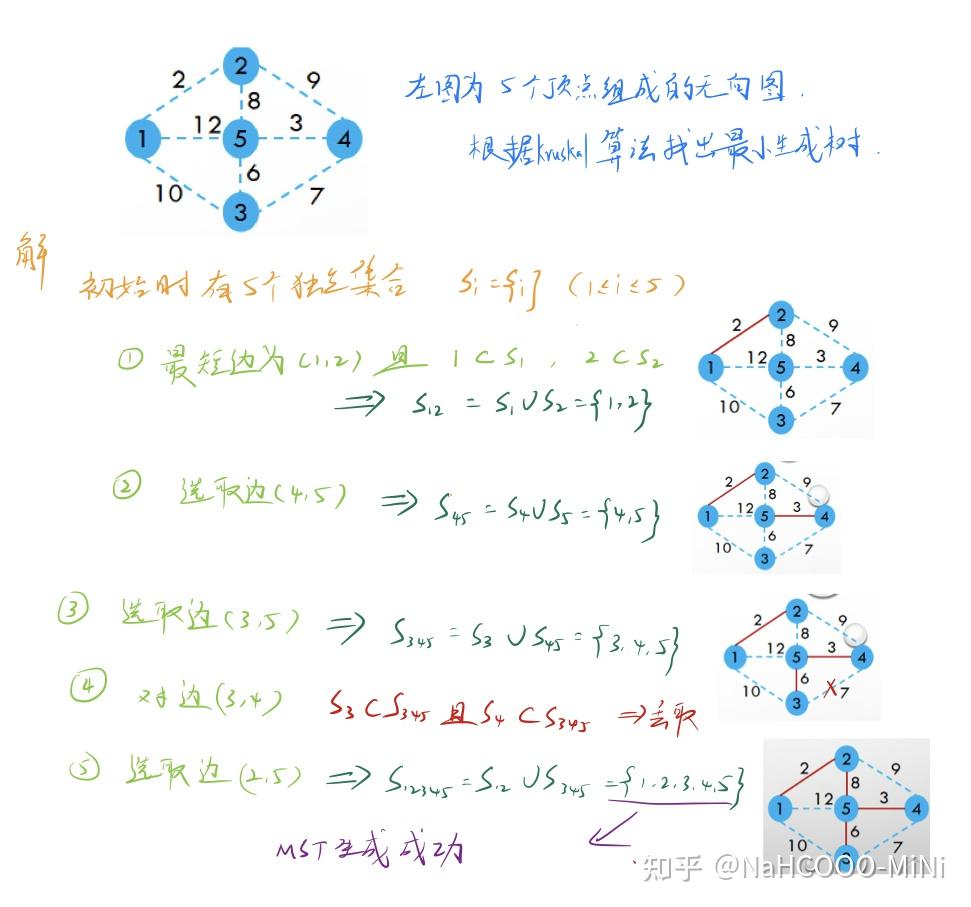 2
2
9
8
1
12
5
3
4
6
10
7
3
左图为5个顶点组成的无向图.
根据kruskal算法找出最小生成树.
解
初始时有5个独立集合 Si={i} (1≤i≤5)
① 最短边为(1,2)且 1⊂S1, 2⊂S2
⇒ S12 = S1∪S2={1,2}
2
2
9
8
1
12
5
3
4
6
10
7
3
② 选取边(4,5) ⇒ S45 = S4∪S5 = {4,5}
2
2
9
8
1
12
5
3
4
6
10
7
3
③ 选取边(3,5) ⇒ S345 = S3∪S45 = {3,4,5}
2
2
9
8
1
12
5
3
4
6
10
X
7
3
④ 对边(3,4) S3⊂S345且S4⊂S345 ⇒丢取
⑤ 选取边(2,5) ⇒ S12345=S12∪S345={1,2,3,4,5}
2
2
9
8
1
12
5
3
4
6
10
7
3
MST生成成功
知乎 @NaHCOOO-MiNi